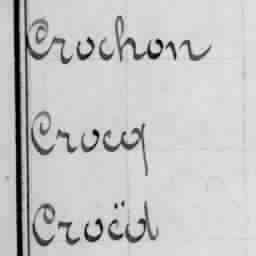 Crochon
Crocq
Croëd